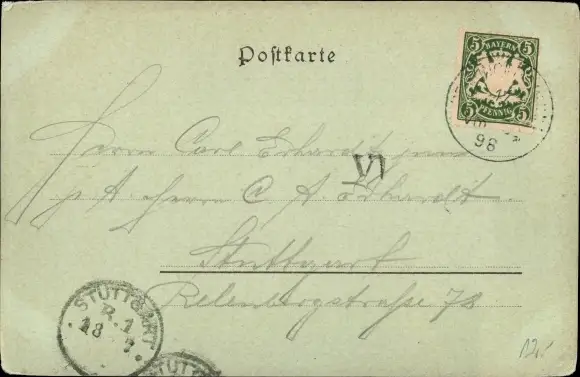 Postkarte
5 BAYERN 5
5 PFENNIG 5
98
Herrn Carl Erhardt jun
VI
p. A. Herrn C A Erhardt
Stuttgart
Relenbergstraße 78
STUTTGART
R.1
18 7
STUTTG